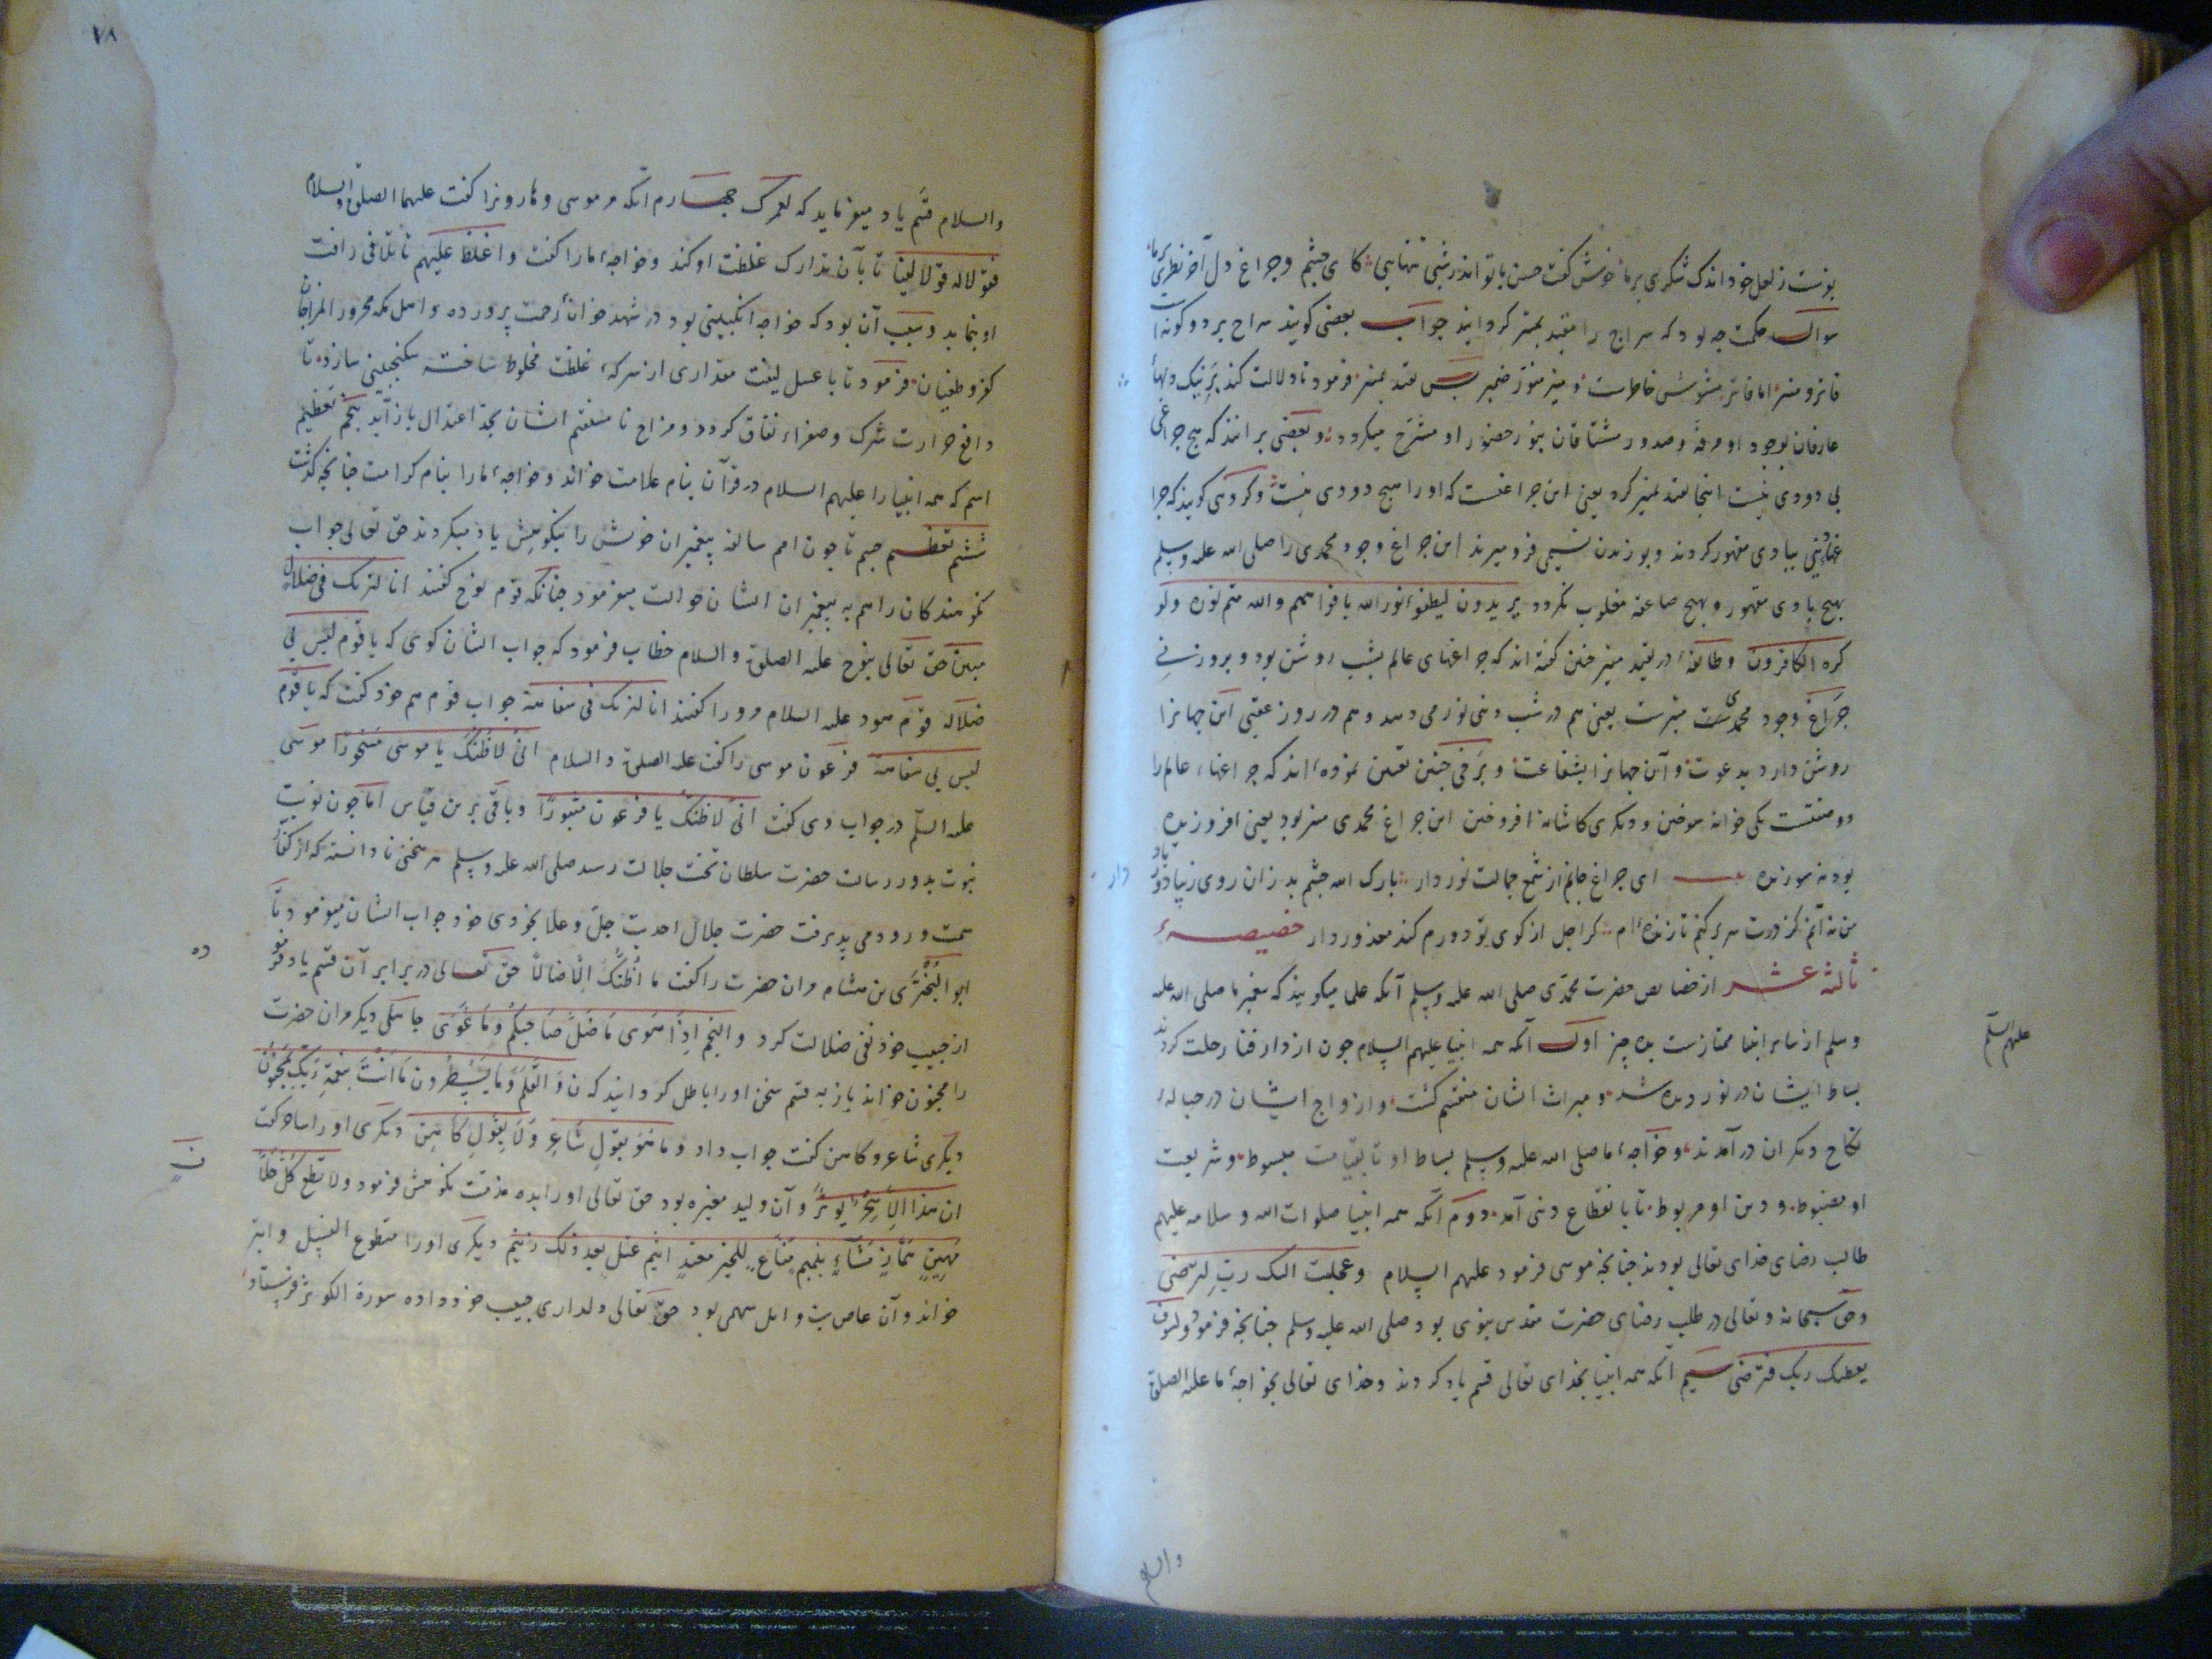 سؤال حکمت چه بود که سراج را مقید بمنیر گردانید جواب بعضی گویند سراج بر دو گونه است
فاتر و منیر اما فاتر مشوش خاطرست و منیر منور ضمیر پس مقید بمنیر فرمود تا دلالت کند بر نیک
عارفان بوجود او مرفه و صدور مشتاقان بنور حضور او مشرح میگردد و بعضی برانند که هیچ چراغی
بی دودی نیست اینجا مقید بمنیر کرد یعنی این چراغیست که او را هیچ دودی نیست و گروهی گویند که چرا
غهاء بببادی مقهور گردند و بوزیدن نسیمی فرو میرند این چراغ وجود محمدی را صلی الله علیه وسلم
بهیچ بادی مقهور و بهیچ صاعقه مغلوب نگردد یریدون لیطفؤا نور الله بافواههم والله متم نوره ولو
کره الکافرون و طائفه در تقید منیر چنین گفته اند که چراغهای عالم بشب روشن بود و بروز نی
چراغ وجود محمدی منیرست یعنی هم در شب دنیی نور می دهد و هم در روز عقبی این جهانرا
روشن دارد بدعوت و آن جهانرا بشفاعت و برخی چنین تعیین نموده اند که چراغهاء عالم را
دو صفتست یکی خوانه سوختن و دیگری کاشانه افروختن این چراغ محمدی منیر بود یعنی افروزنده
بود نه سوزنده ای چراغ جانم از شمع جمالت نور دار بارک الله چشم بد زان روی زیبا دور
من نه آنم کز درت سر بر کنم تا زنده ام گر اجل از کوی تو دورم کند معذور دار خصیصهٔ
ثالثه عشر از خصایص حضرت محمدی صلی الله علیه وسلم آنکه علما میگویند که پیغمبر ما صلی الله علیه
وسلم از سایر انبیا ممتازست بده چیز اول آنکه همه انبیا علیهم السلام چون از دار فنا رحلت کردند
علیهم السلم
بساط ایشان در نوردیده شد و میراث ایشان منقسم گشت و ازواج ایشان در حبالهٔ
نکاح دیگران در آمدند و خواجهٔ ما صلی الله علیه وسلم بساط او تا بقیامت مبسوط و شریعت
او مضبوط و دین او مربوط تا بانقطاع دنیی آمد دوم آنکه همه انبیا صلوات الله و سلامه علیهم
طالب رضای خدای تعالی بودند چنانچه موسی فرمود علیهم السلام وعجلت الیک رب لترضی
و حق سبحانه و تعالی در طلب رضای حضرت مقدس نبوی بود صلی الله علیه وسلم چنانچه فرمود ولسوف
یعطیک ربک فترضی سیم آنکه همه انبیا بخدای تعالی قسم یاد کردند و خدای تعالی بخواجهٔ ما علیه الصلوة
والسلام
۷۸
والسلام قسم یاد میفرماید که لعمرک چهارم آنکه مر موسی و هارونرا گفت علیهما الصلوة والسلام
فقولا له قولا لینا تا بآن تدارک غلظت او کند و خواجهٔ ما را گفت واغلظ علیهم تا تلافی رافت
او بنماید و سبب آن بود که خواجه انگبینی بود در شهد خوان رحمت پرورده و اهل مکه محرور المزاجان
کفر و طغیان فرمود تا با عسل لینت مقداری از سرکهٔ غلظت مخلوط ساخته سکنجبینی سازد تا
دافع حرارت شرک و صفراء نفاق گردد و مزاج نا مستقیم ایشان بحد اعتدال باز آید پنجم تعظیم
اسم که همه انبیا را علیهم السلام در قرآن بنام علامت خواند و خواجهٔ ما را بنام کرامت چنانچه گذشت
ششم تعظیم جسم تا چون امم سالفه پیغمبران خویش را بنکوهش یاد میکردند حق تعالی جواب
نکوهندگان را هم به پیغمبران ایشان حوالت میفرمود چنانکه قوم نوح گفتند انا لنریک فی ضلال
مبین حق تعالی بنوح علیه الصلوة والسلام خطاب فرمود که جواب ایشان گوی که یا قوم لیس بی
ضلالة قوم هود علیه السلام مر ورا گفتند انا لنریک فی سفاهة جواب قوم هم خود گفت که یا قوم
لیس بی سفاهة فرعون موسی را گفت علیه الصلوة والسلام انی لاظنک یا موسی مسحورا موسی
علیه السلم در جواب وی گفت انی لاظنک یا فرعون مثبورا و باقی برین قیاس اما چون نوبت
نبوت بدور رسالت حضرت سلطان تخت جلالت رسید صلی الله علیه وسلم هر سخنی نادانسته که از کفار
سمت ورود می پذیرفت حضرت جلال احدیت جل و علا بخودی خود جواب ایشان میفرمود تا
ابو البختری بن هشام مر ان حضرت را گفت ما اظنک الا ضالا حق تعالی در برابر آن قسم یاد فرمو
ده
از حبیب خود نفی ضلالت کرد والنجم اذا هوی ما ضل صاحبکم وما غوی جاهلی دیگر مر ان حضرت
را مجنون خواند باز به قسم سخن او را باطل گردانید که ن والقلم وما یسطرون ما انت بنعمة ربک بمجنون
دیگری شاعر و کاهن گفت جواب داد وما هو بقول شاعر ولا بقول کاهن دیگری او را ساحر گفت
ان هذا الا سحر یؤثر و آن ولید مغیره بود حق تعالی او را بده مذمت نکوهش فرمود ولا تطع کل حلاف
مهین هماز مشاء بنمیم مناع للخیر معتد اثیم عتل بعد ذلک زنیم دیگری او را مقطوع النسل و ابتر
خواند و آن عاص بن وائل سهمی بود حق تعالی دلداری حبیب خود داده سورة الکوثر فرستاد